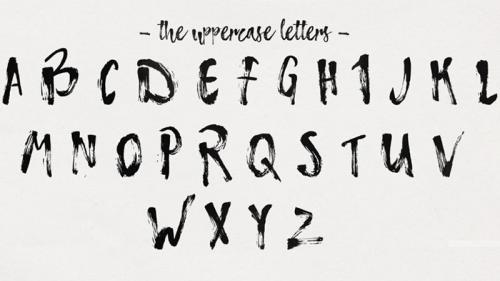 - the uppercase letters -
A B C D E F G H I J K L
M N O P R Q S T U V
W X Y Z